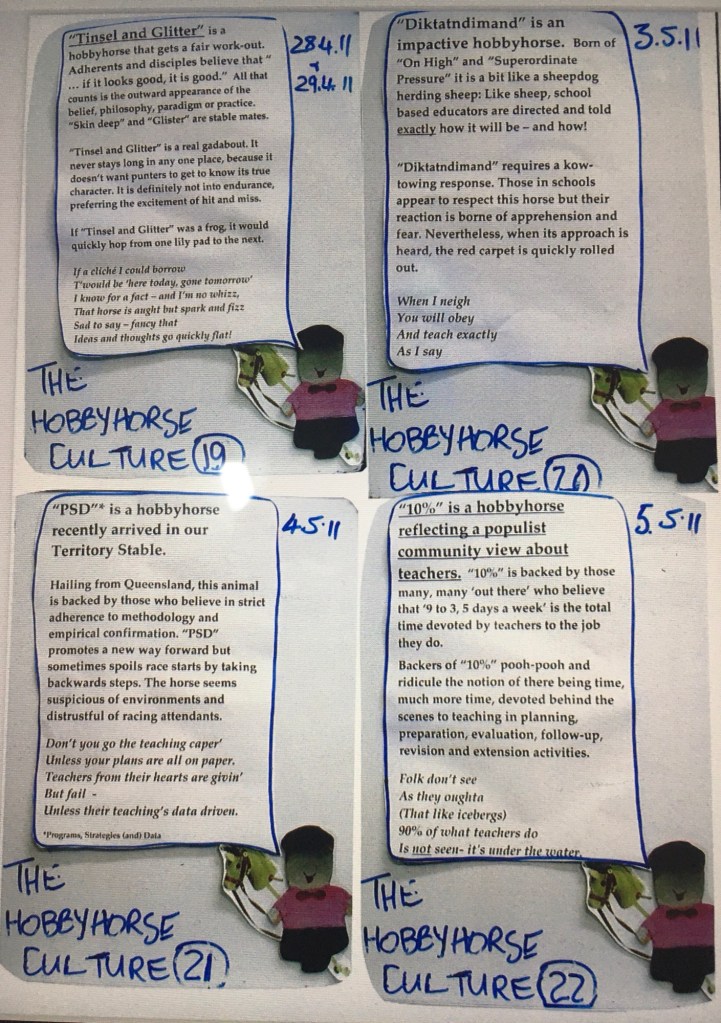 "Tinsel and Glitter" is a
hobbyhorse that gets a fair work-out.
Adherents and disciples believe that "
... if it looks good, it is good." All that
counts is the outward appearance of the
belief, philosophy, paradigm or practice.
"Skin deep" and "Glister" are stable mates.
"Tinsel and Glitter" is a real gadabout. It
never stays long in any one place, because it
doesn't want punters to get to know its true
character. It is definitely not into endurance,
preferring the excitement of hit and miss.
If "Tinsel and Glitter" was a frog, it would
quickly hop from one lily pad to the next.
If a cliché I could borrow
T'would be 'here today, gone tomorrow'
I know for a fact – and I'm no whizz,
That horse is aught but spark and fizz
Sad to say – fancy that
Ideas and thoughts go quickly flat!
28.4.11
+
29.4.11
THE
HOBBYHORSE
CULTURE 19
"Diktatndimand" is an
impactive hobbyhorse. Born of
"On High" and "Superordinate
Pressure" it is a bit like a sheepdog
herding sheep: Like sheep, school
based educators are directed and told
exactly how it will be – and how!
"Diktatndimand" requires a kow-
towing response. Those in schools
appear to respect this horse but their
reaction is borne of apprehension and
fear. Nevertheless, when its approach is
heard, the red carpet is quickly rolled
out.
When I neigh
You will obey
And teach exactly
As I say
3.5.11
THE
HOBBYHORSE
CULTURE 20
"PSD"* is a hobbyhorse
recently arrived in our
Territory Stable.
Hailing from Queensland, this animal
is backed by those who believe in strict
adherence to methodology and
empirical confirmation. "PSD"
promotes a new way forward but
sometimes spoils race starts by taking
backwards steps. The horse seems
suspicious of environments and
distrustful of racing attendants.
Don't you go the teaching caper'
Unless your plans are all on paper.
Teachers from their hearts are givin'
But fail -
Unless their teaching's data driven.
*Programs, Strategies (and) Data
4.5.11
THE
HOBBYHORSE
CULTURE 21
"10%" is a hobbyhorse
reflecting a populist
community view about
teachers. "10%" is backed by those
many, many 'out there' who believe
that '9 to 3, 5 days a week' is the total
time devoted by teachers to the job
they do.
Backers of "10%" pooh-pooh and
ridicule the notion of there being time,
much more time, devoted behind the
scenes to teaching in planning,
preparation, evaluation, follow-up,
revision and extension activities.
Folk don't see
As they oughta
(That like icebergs)
90% of what teachers do
Is not seen- it's under the water.
5.5.11
THE
HOBBYHORSE
CULTURE 22